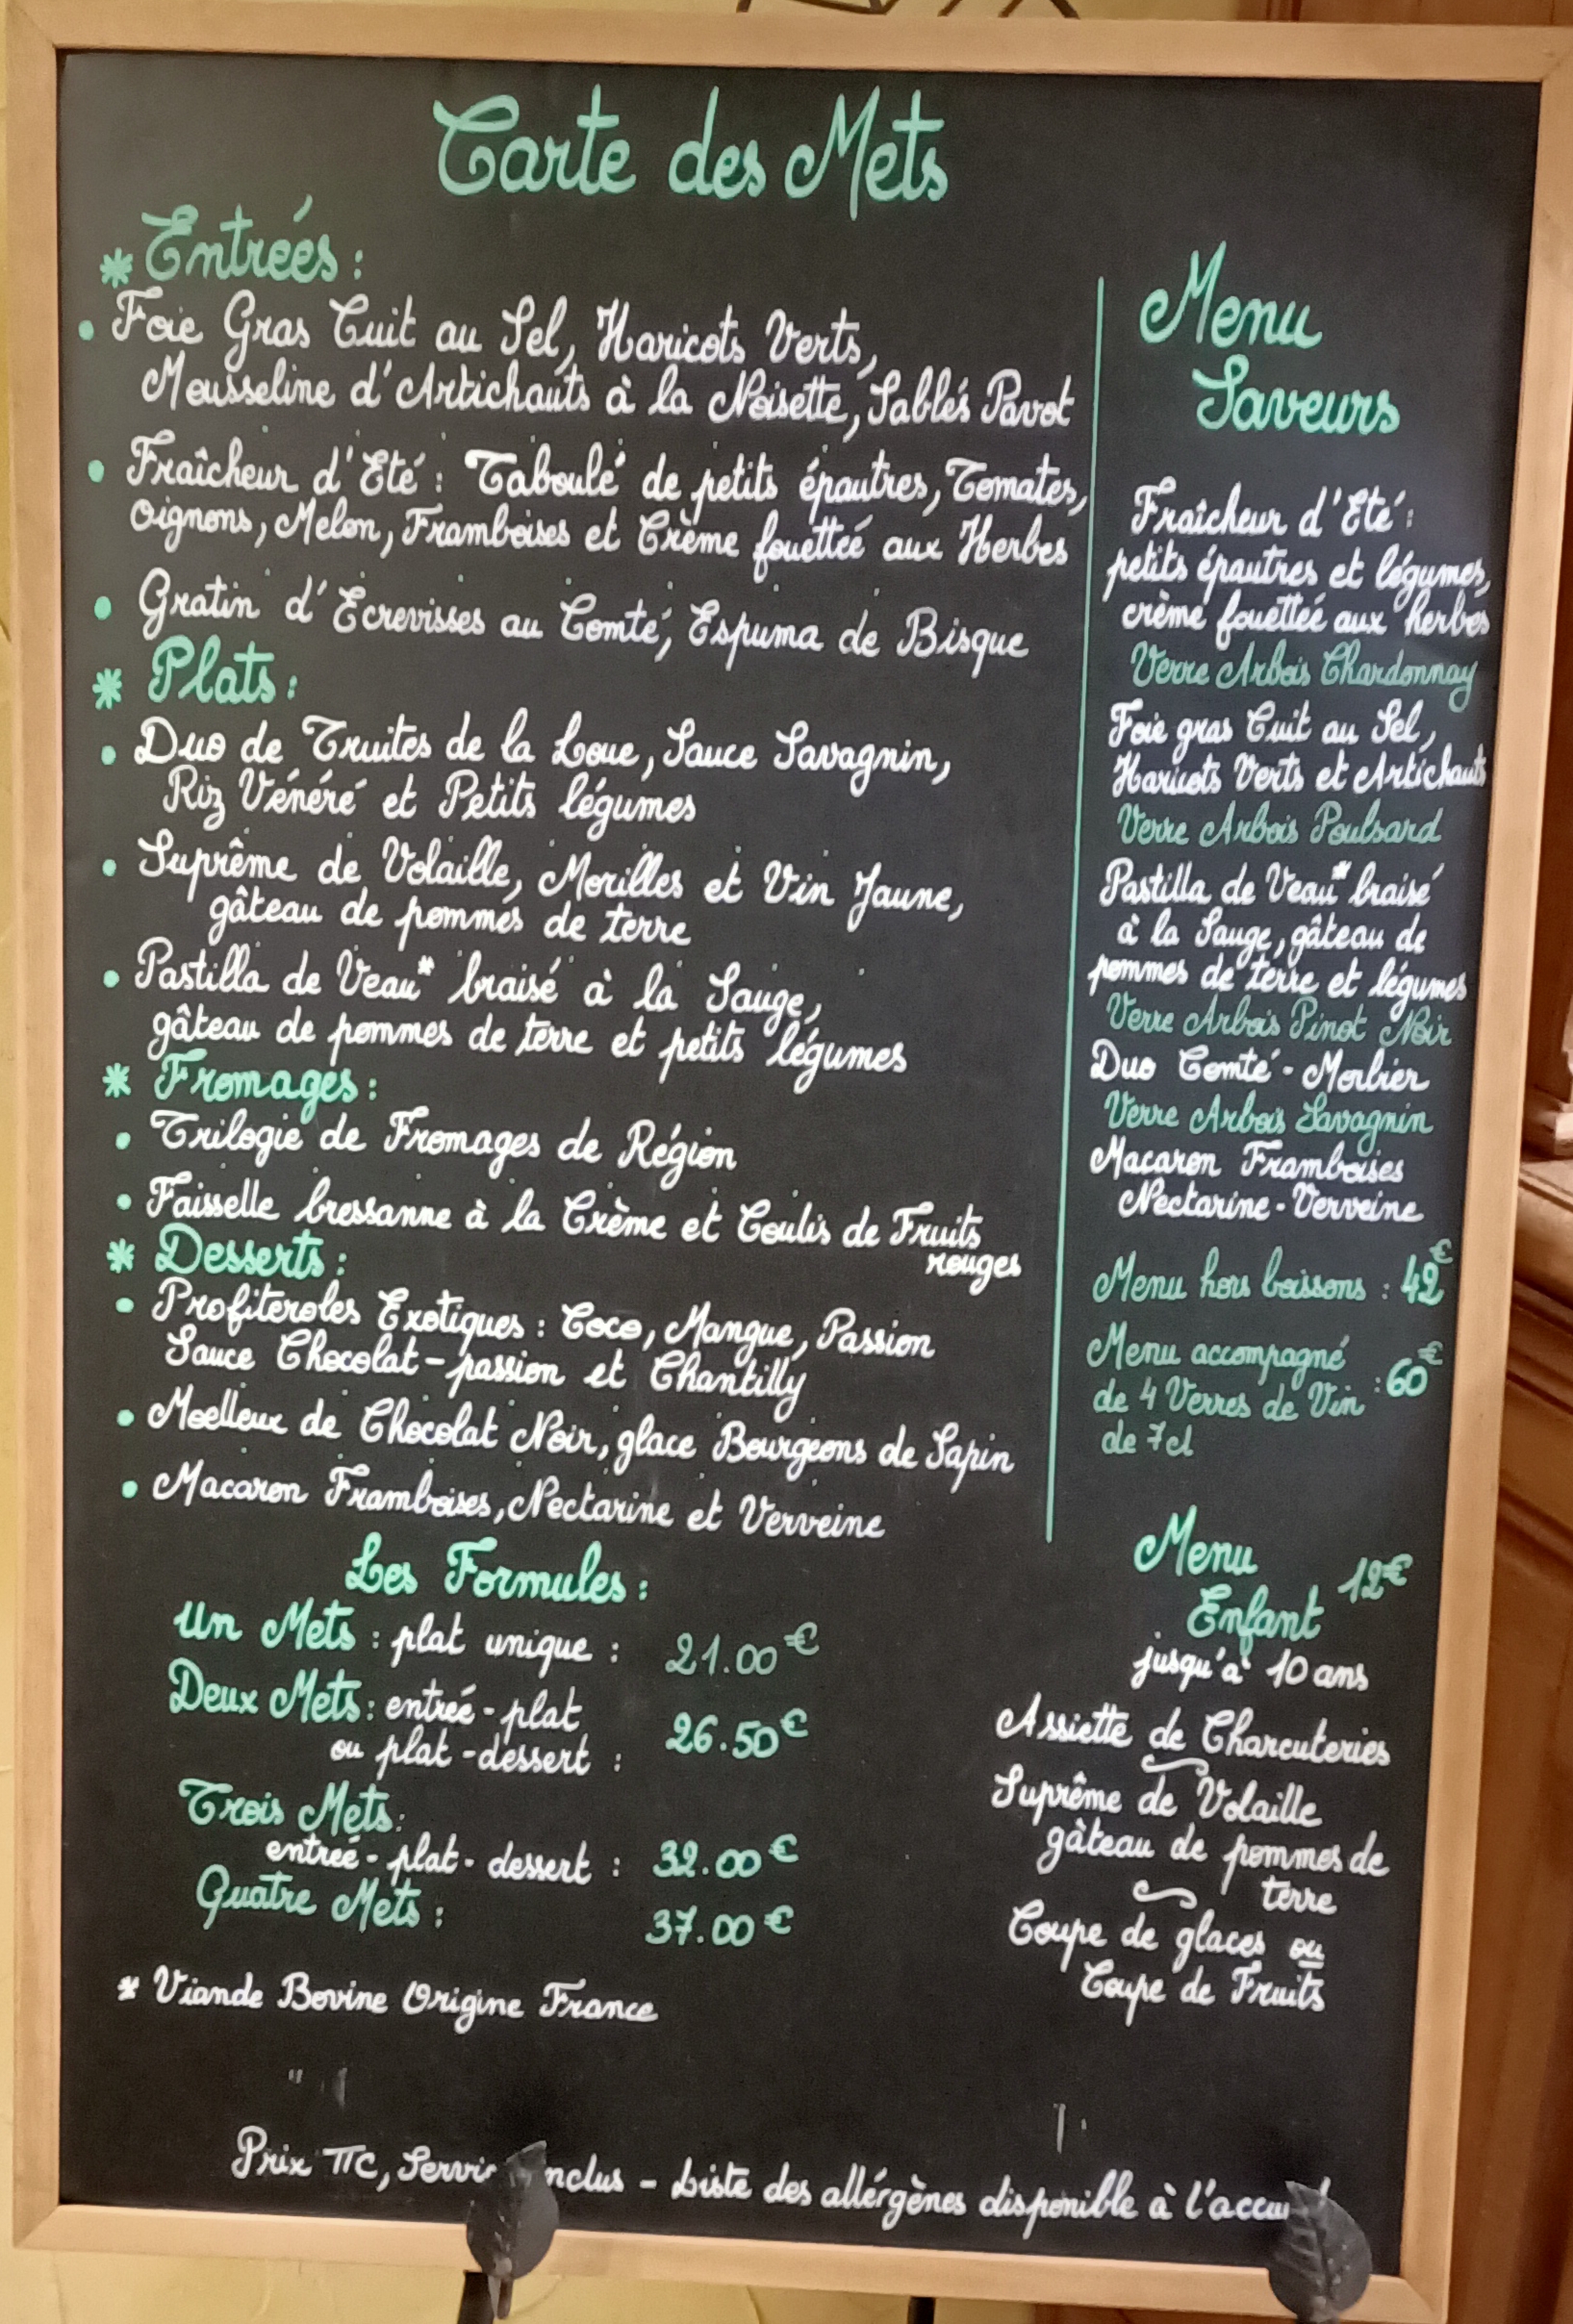 Carte des Mets
* Entrées :
• Foie Gras Cuit au Sel, Haricots Verts,
Mousseline d'Artichauts à la Noisette, Sablés Pavot
• Fraîcheur d'Eté : Taboulé de petits épautres, Tomates,
Oignons, Melon, Framboises et Crème fouettée aux Herbes
• Gratin d'Ecrevisses au Comté, Espuma de Bisque
* Plats :
• Duo de Truites de la Loue, Sauce Savagnin,
Riz Vénéré et Petits légumes
• Suprême de Volaille, Morilles et Vin Jaune,
gâteau de pommes de terre
• Pastilla de Veau* braisé à la Sauge,
gâteau de pommes de terre et petits légumes
* Fromages :
• Trilogie de Fromages de Région
• Faisselle bressanne à la Crème et Coulis de Fruits
rouges
* Desserts :
• Profiteroles Exotiques : Coco, Mangue, Passion
Sauce Chocolat-passion et Chantilly
• Moelleux de Chocolat Noir, glace Bourgeons de Sapin
• Macaron Framboises, Nectarine et Verveine
Les Formules :
Un Mets : plat unique : 21.00€
Deux Mets : entrée - plat
ou plat - dessert : 26.50€
Trois Mets :
entrée - plat - dessert : 32.00€
Quatre Mets : 37.00€
* Viande Bovine Origine France
Menu
Saveurs
Fraîcheur d'Eté :
petits épautres et légumes,
crème fouettée aux herbes
Verre Arbois Chardonnay
Foie gras Cuit au Sel,
Haricots Verts et Artichauts
Verre Arbois Poulsard
Pastilla de Veau* braisé
à la Sauge, gâteau de
pommes de terre et légumes
Verre Arbois Pinot Noir
Duo Comté - Morbier
Verre Arbois Savagnin
Macaron Framboises
Nectarine - Verveine
Menu hors boissons : 42€
Menu accompagné
de 4 Verres de Vin : 60€
de 7cl
Menu
Enfant 12€
jusqu'à 10 ans
Assiette de Charcuteries
Suprême de Volaille
gâteau de pommes de
terre
Coupe de glaces ou
Coupe de Fruits
Prix TTC, - Liste des allérgènes disponible à